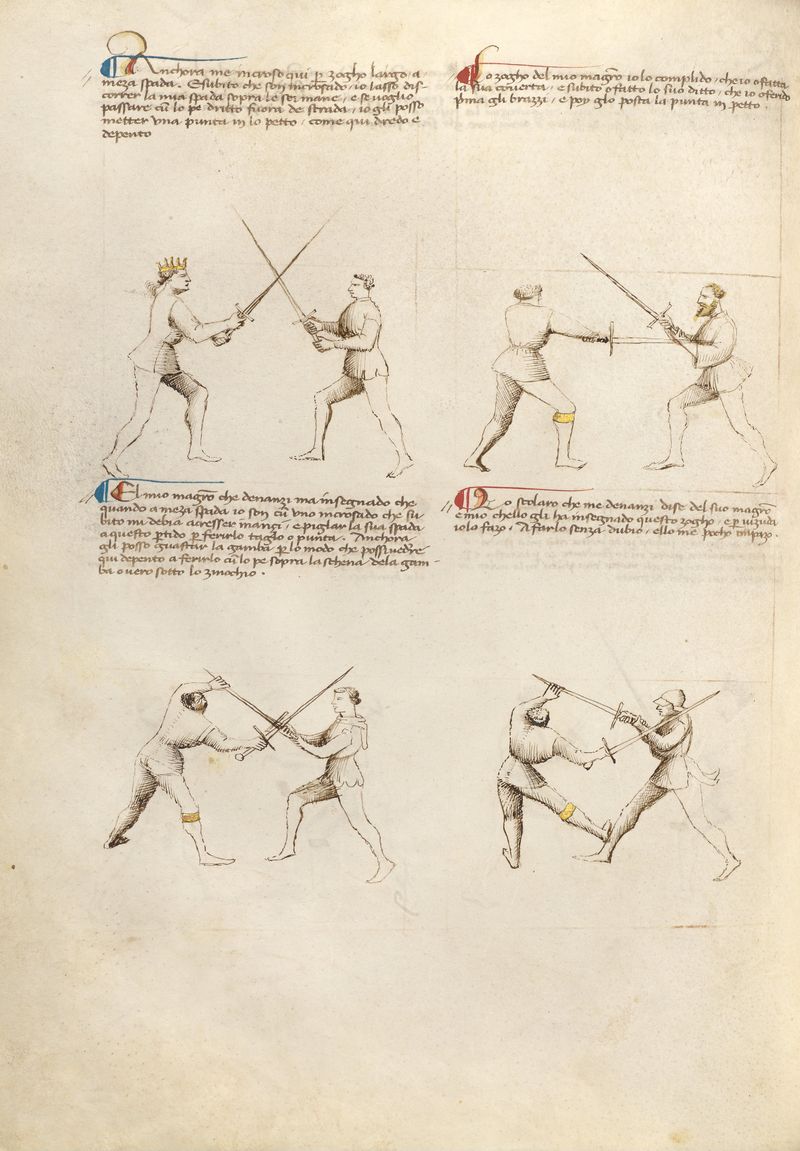 Anchora me incroso qui per zogho largo, a
meza spada. E subito che son incrosado, io lasso dis-
correr la mia spada sopra le soi mane, e se voglio
passare cum lo pe dritto fuora de strada, io gli posso
metter una punta in lo petto, come qui dredo e
depento
Lo zogho del mio magistro io lo complido, che io o fatta
la sua coverta, e subito o fatto lo suo ditto, che io o ferido
prima gli brazzi, e poy glo posta la punta in petto.
El mio magistro che denanzi m'a insegnado che
quando a meza spada io son cum uno incrosado che su-
bito mi debia acresser inanci, e piglar la sua spada
a questo partido per ferirlo taglo o punta. Anchora
gli posso guastar la gamba per lo modo che possi vedere
qui depento a ferirlo cum lo pe sopra la schena dela gam-
ba overo sotto lo zinochio.
Lo scolaro che me denanzi dise del suo magistro
e mio chello gli ha insegnado questo zogho, e per vizuda
io lo fazo. A farlo senza dubio, ello me pocho impazo.